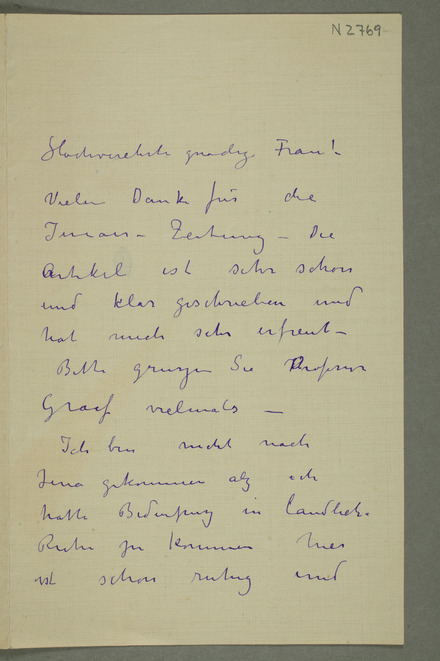 N2769
Hochverehrte gnädige Frau!
Vielen Dank für die
Zeitung – Die
Artikel ist sehr schön
und klar geschrieben und
hat mich sehr erfreut –
Bitte grüssen Sie Professor
Graef vielmals –
Ich bin nicht nach
Jena gekommen als ich
hatte in Landliche
Ruhe zu kommen hier
ist schon ruhig und